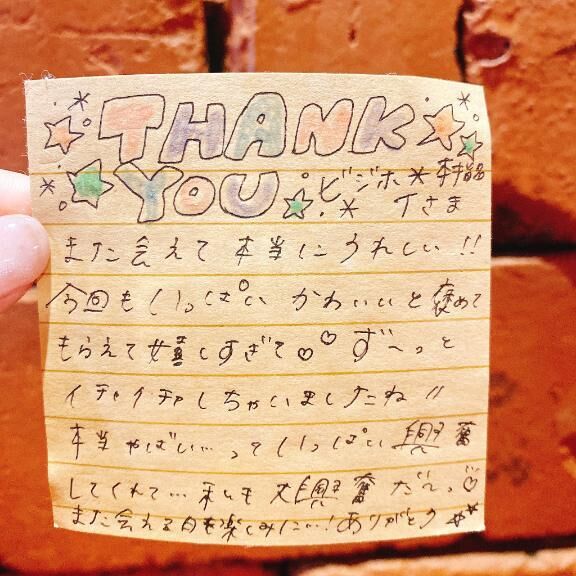 THANK
YOU ビジホ*本指名
Tさま
また会えて本当にうれしい!!
今回もいっぱいかわいいと褒めて
もらえて嬉しすぎて♡♡ず〜っと
イチャイチャしちゃいましたね!!
本当やばい…っていっぱい興奮
してくれて…私も大興奮だよっ♡
また会える日も楽しみにー!ありがとう